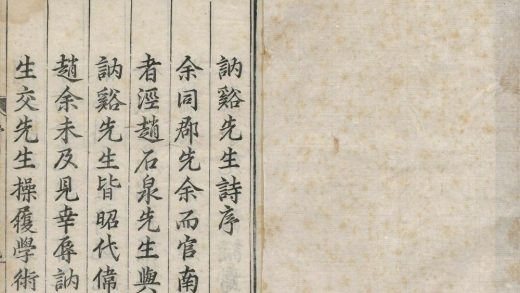 訥谿先生詩序
余同郡先余而官南
者涇趙石泉先生與
訥谿先生皆昭代偉
趙余未及見幸辱訥
生交先生操履學術